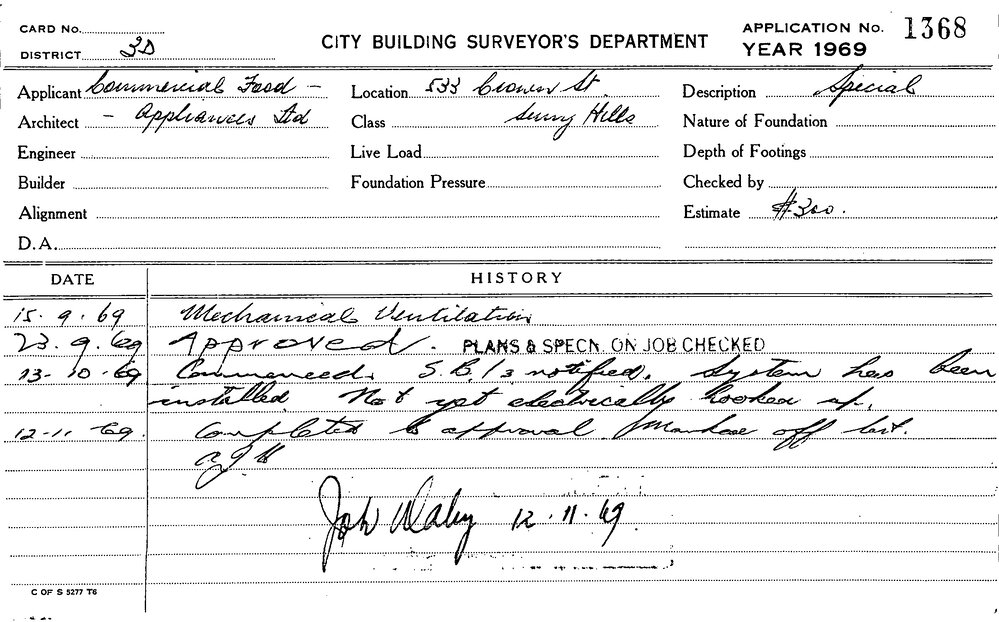 CARD No.
DISTRICT 3D
CITY BUILDING SURVEYOR'S DEPARTMENT
APPLICATION No. 1368
YEAR 1969
Applicant Commercial Food -
Location 533 Crown St.
Description Special
Architect - Appliances Ltd
Class Surry Hills
Nature of Foundation
Engineer
Live Load
Depth of Footings
Builder
Foundation Pressure
Checked by
Alignment
Estimate $300.
D.A.
DATE HISTORY
15.9.69 Mechanical Ventilation
23.9.69 Approved. PLANS & SPECN. ON JOB CHECKED
13-10-69 Commenced. notified. System has been
installed Not yet electrically hooked up.
12-11-69. Completed to approval off
12.11.69
C OF S 5277 T6